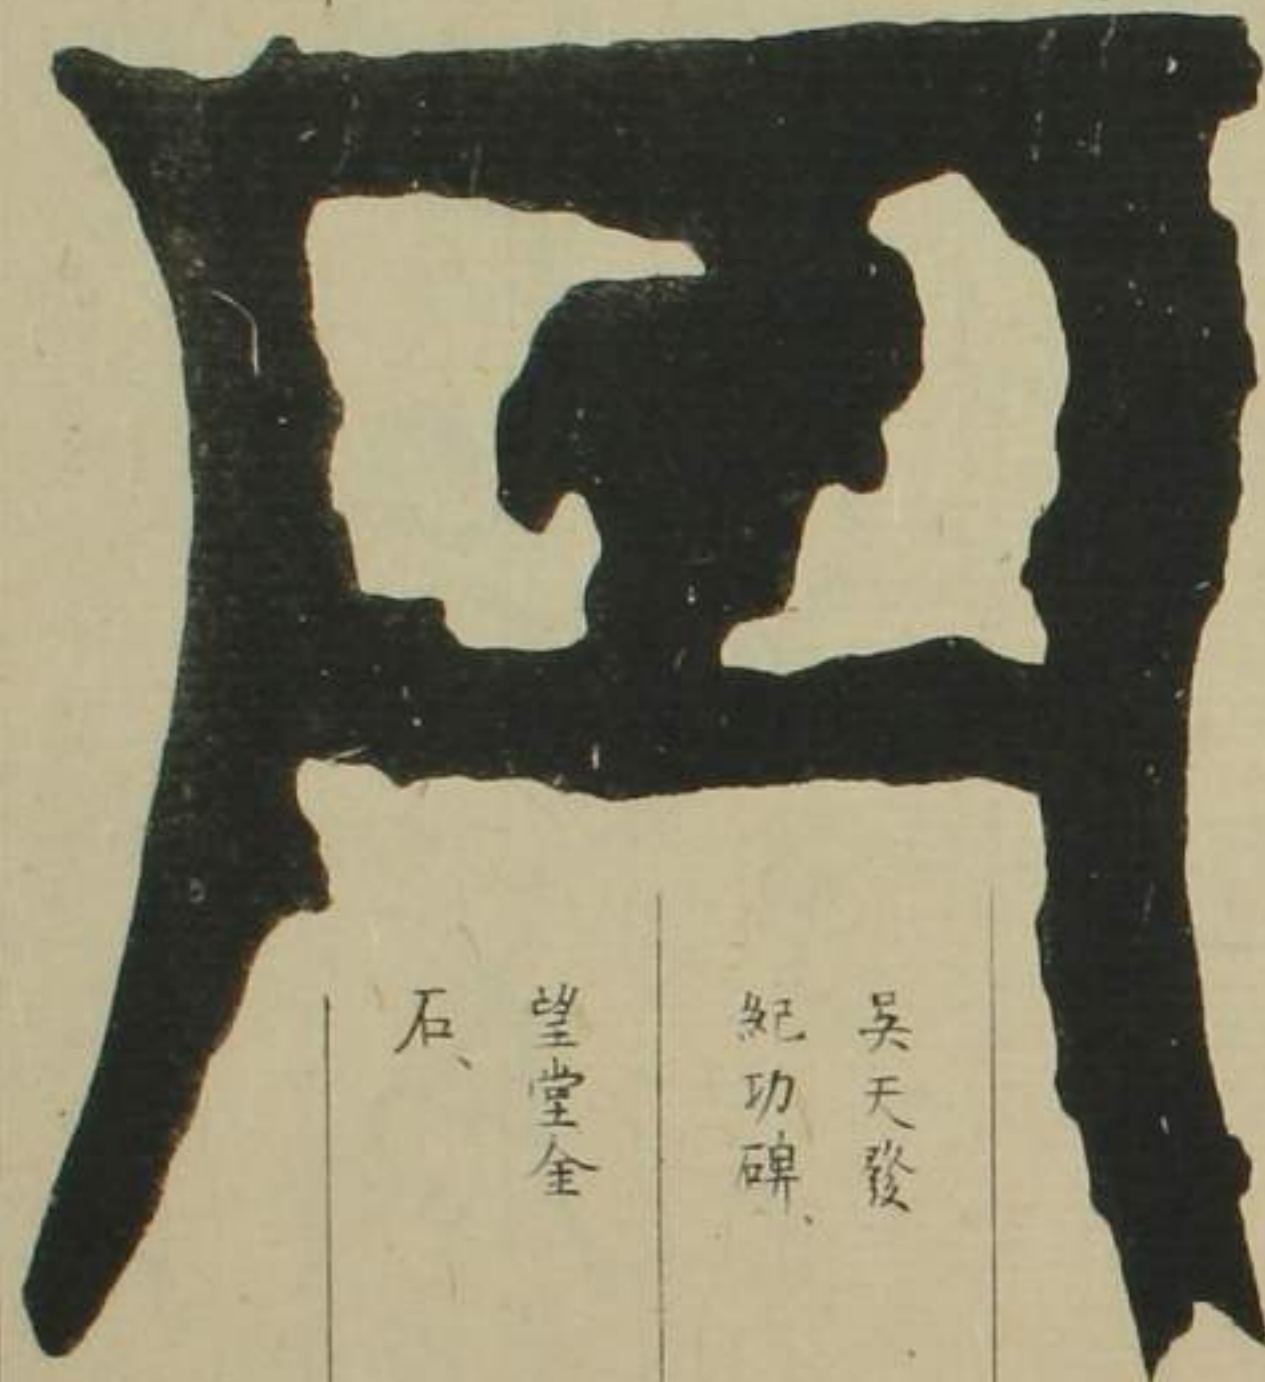 丹
吳天發
紀功碑、
望堂金
石、